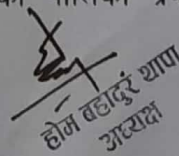 होम बहादुर थापा
अध्यक्ष